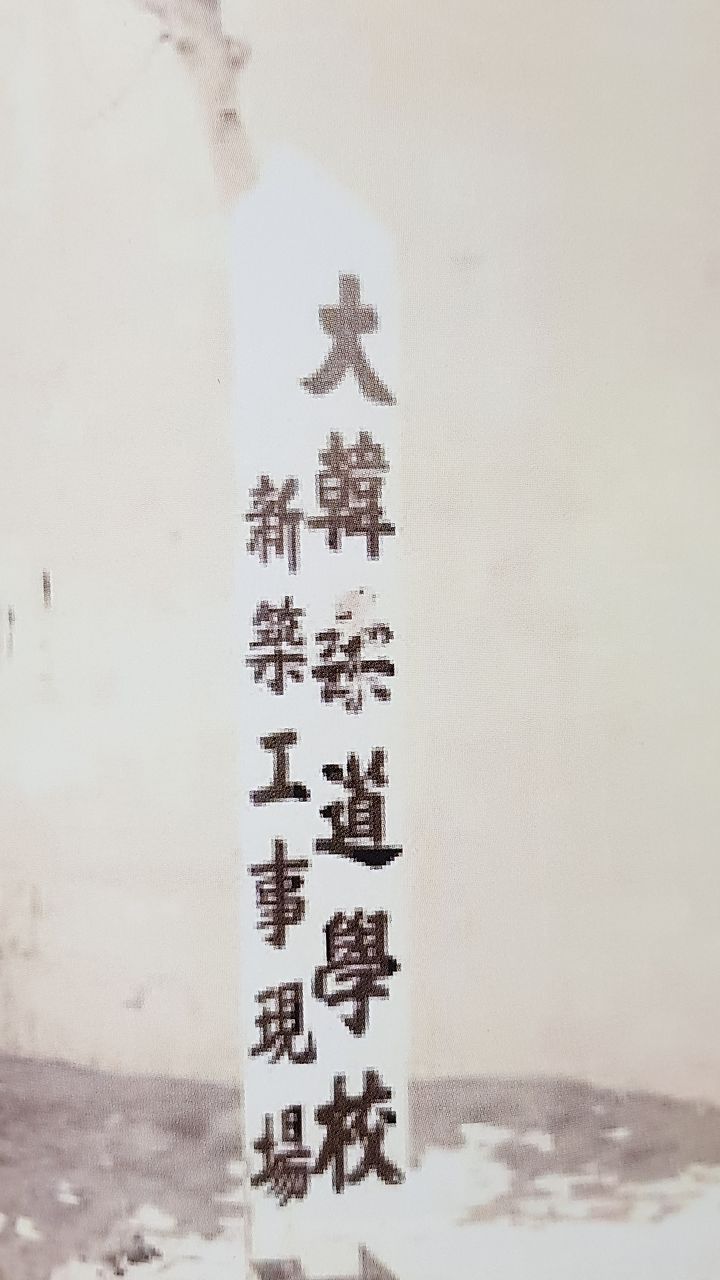 大韓柔道學校
新築工事現場